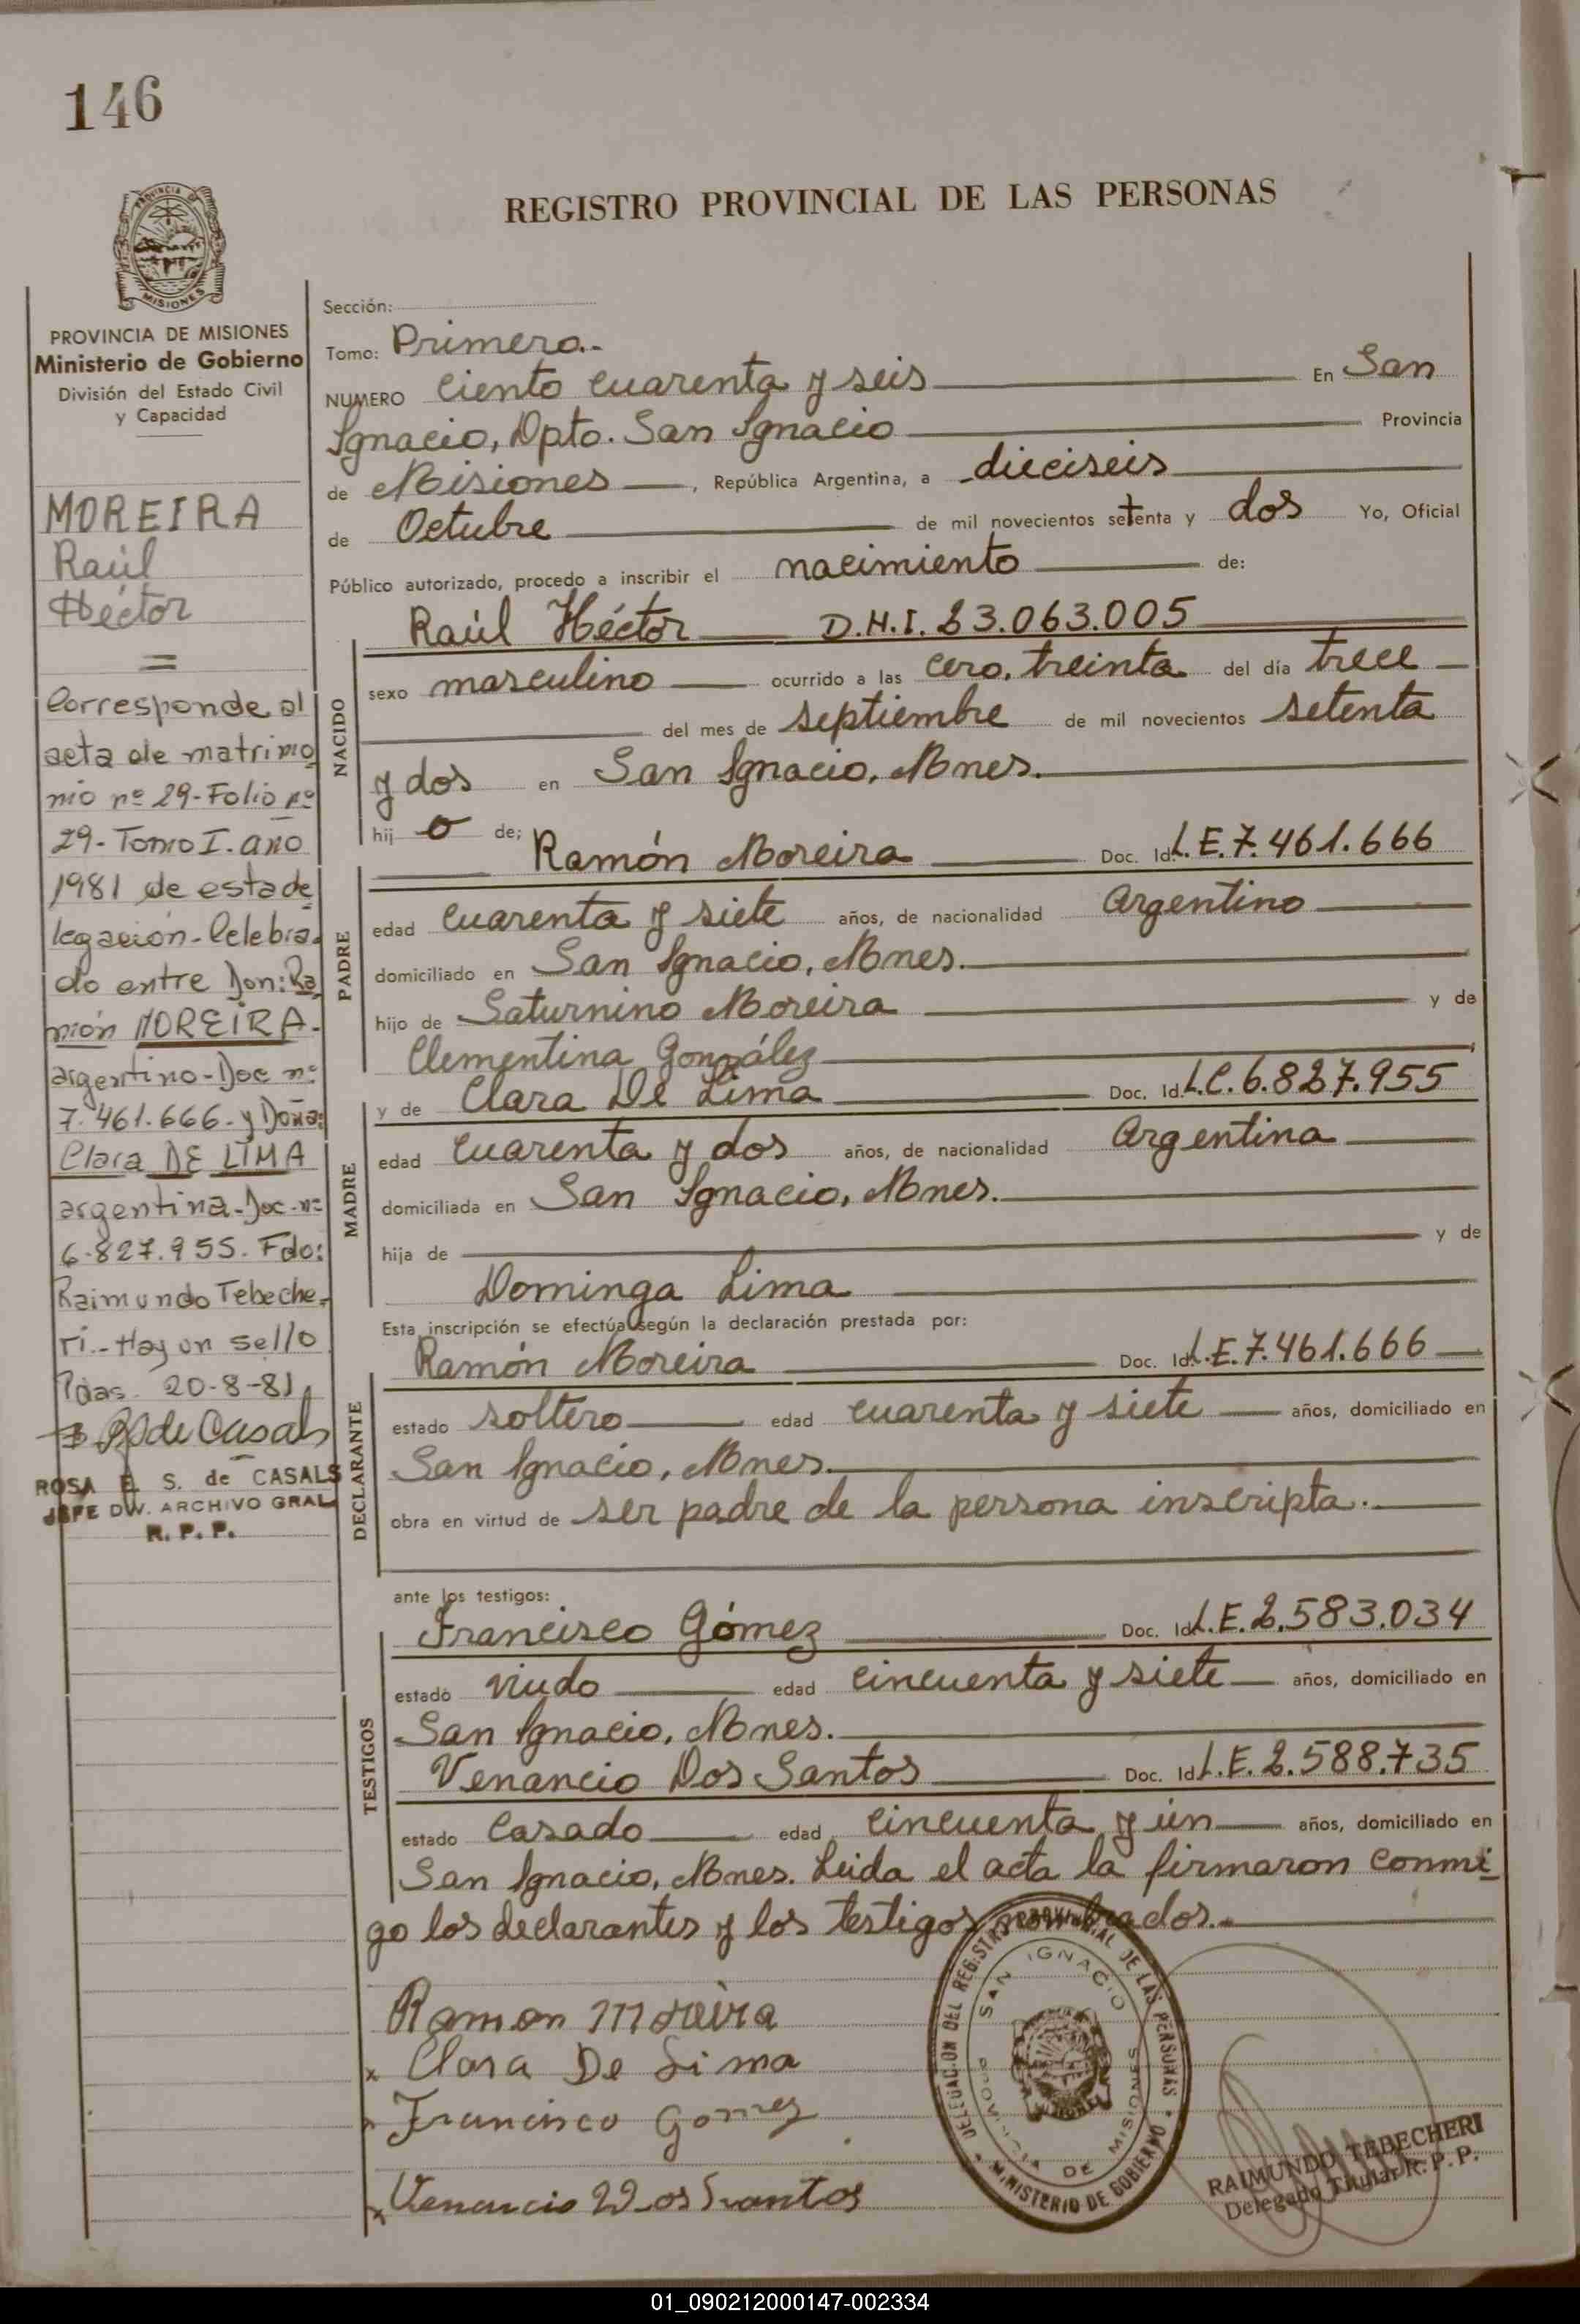 146
PROVINCIA DE
MISIONES
REGISTRO PROVINCIAL DE LAS PERSONAS
PROVINCIA DE MISIONES
Ministerio de Gobierno
División del Estado Civil
y Capacidad
MOREIRA
Raúl
Héctor
=
Corresponde al
acta de matrimo
nio nº 29-Folio nº
29-Tomo I. año
1981 de esta de
legación-Celebra-
do entre Don: Ra
món MOREIRA-
argentino-Doc nº
7.461.666-y Doña:
Clara DE LIMA
argentina-Doc-nº
6.827.955. Fdo:
Raimundo Tebeche-
ri.-Hay un sello
Pdas. 20-8-81
de Casals
ROSA E. S. de CASALS
JEFE DIV. ARCHIVO GRAL
R. P. P.
Sección:
Tomo: Primero.-
NUMERO Ciento cuarenta y seis En San
Ignacio, Dpto. San Ignacio Provincia
de Misiones, República Argentina, a dieciseis
de Octubre de mil novecientos setenta y dos Yo, Oficial
Público autorizado, procedo a inscribir el nacimiento de:
Raúl Héctor D.N.I. 23.063.005
NACIDO
sexo masculino ocurrido a las cero, treinta del día trece
del mes de septiembre de mil novecientos setenta
y dos en San Ignacio, Mnes.
hij o de; Ramón Moreira Doc. Id. L.E. 7.461.666
PADRE
edad cuarenta y siete años, de nacionalidad Argentino
domiciliado en San Ignacio, Mnes.
hijo de Saturnino Moreira y de
Clementina González
y de Clara De Lima Doc. Id. L.C. 6.827.955
MADRE
edad cuarenta y dos años, de nacionalidad Argentina
domiciliada en San Ignacio, Mnes.
hija de y de
Dominga Lima
Esta inscripción se efectúa según la declaración prestada por:
Ramón Moreira Doc. Id. L.E. 7.461.666
DECLARANTE
estado soltero edad cuarenta y siete años, domiciliado en
San Ignacio, Mnes.
obra en virtud de ser padre de la persona inscripta.
ante los testigos:
Francisco Gómez Doc. Id. L.E. 2.583.034
TESTIGOS
estado viudo edad cincuenta y siete años, domiciliado en
San Ignacio, Mnes.
Venancio Dos Santos Doc. Id. L.E. 2.588.735
estado casado edad cincuenta y un años, domiciliado en
San Ignacio, Mnes. Leida el acta la firmaron conmi
go los declarantes y los testigos nombrados.-
Ramon Moreira
x Clara De Lima
x Francisco Gomez
x Venancio Dos Santos
DELEGACION DEL REGISTRO PROVINCIAL DE LAS PERSONAS
MINISTERIO DE GOBIERNO
SAN IGNACIO
PROVINCIA DE MISIONES
RAIMUNDO TEBECHERI
Delegado Titular R. P. P.
01_090212000147-002334